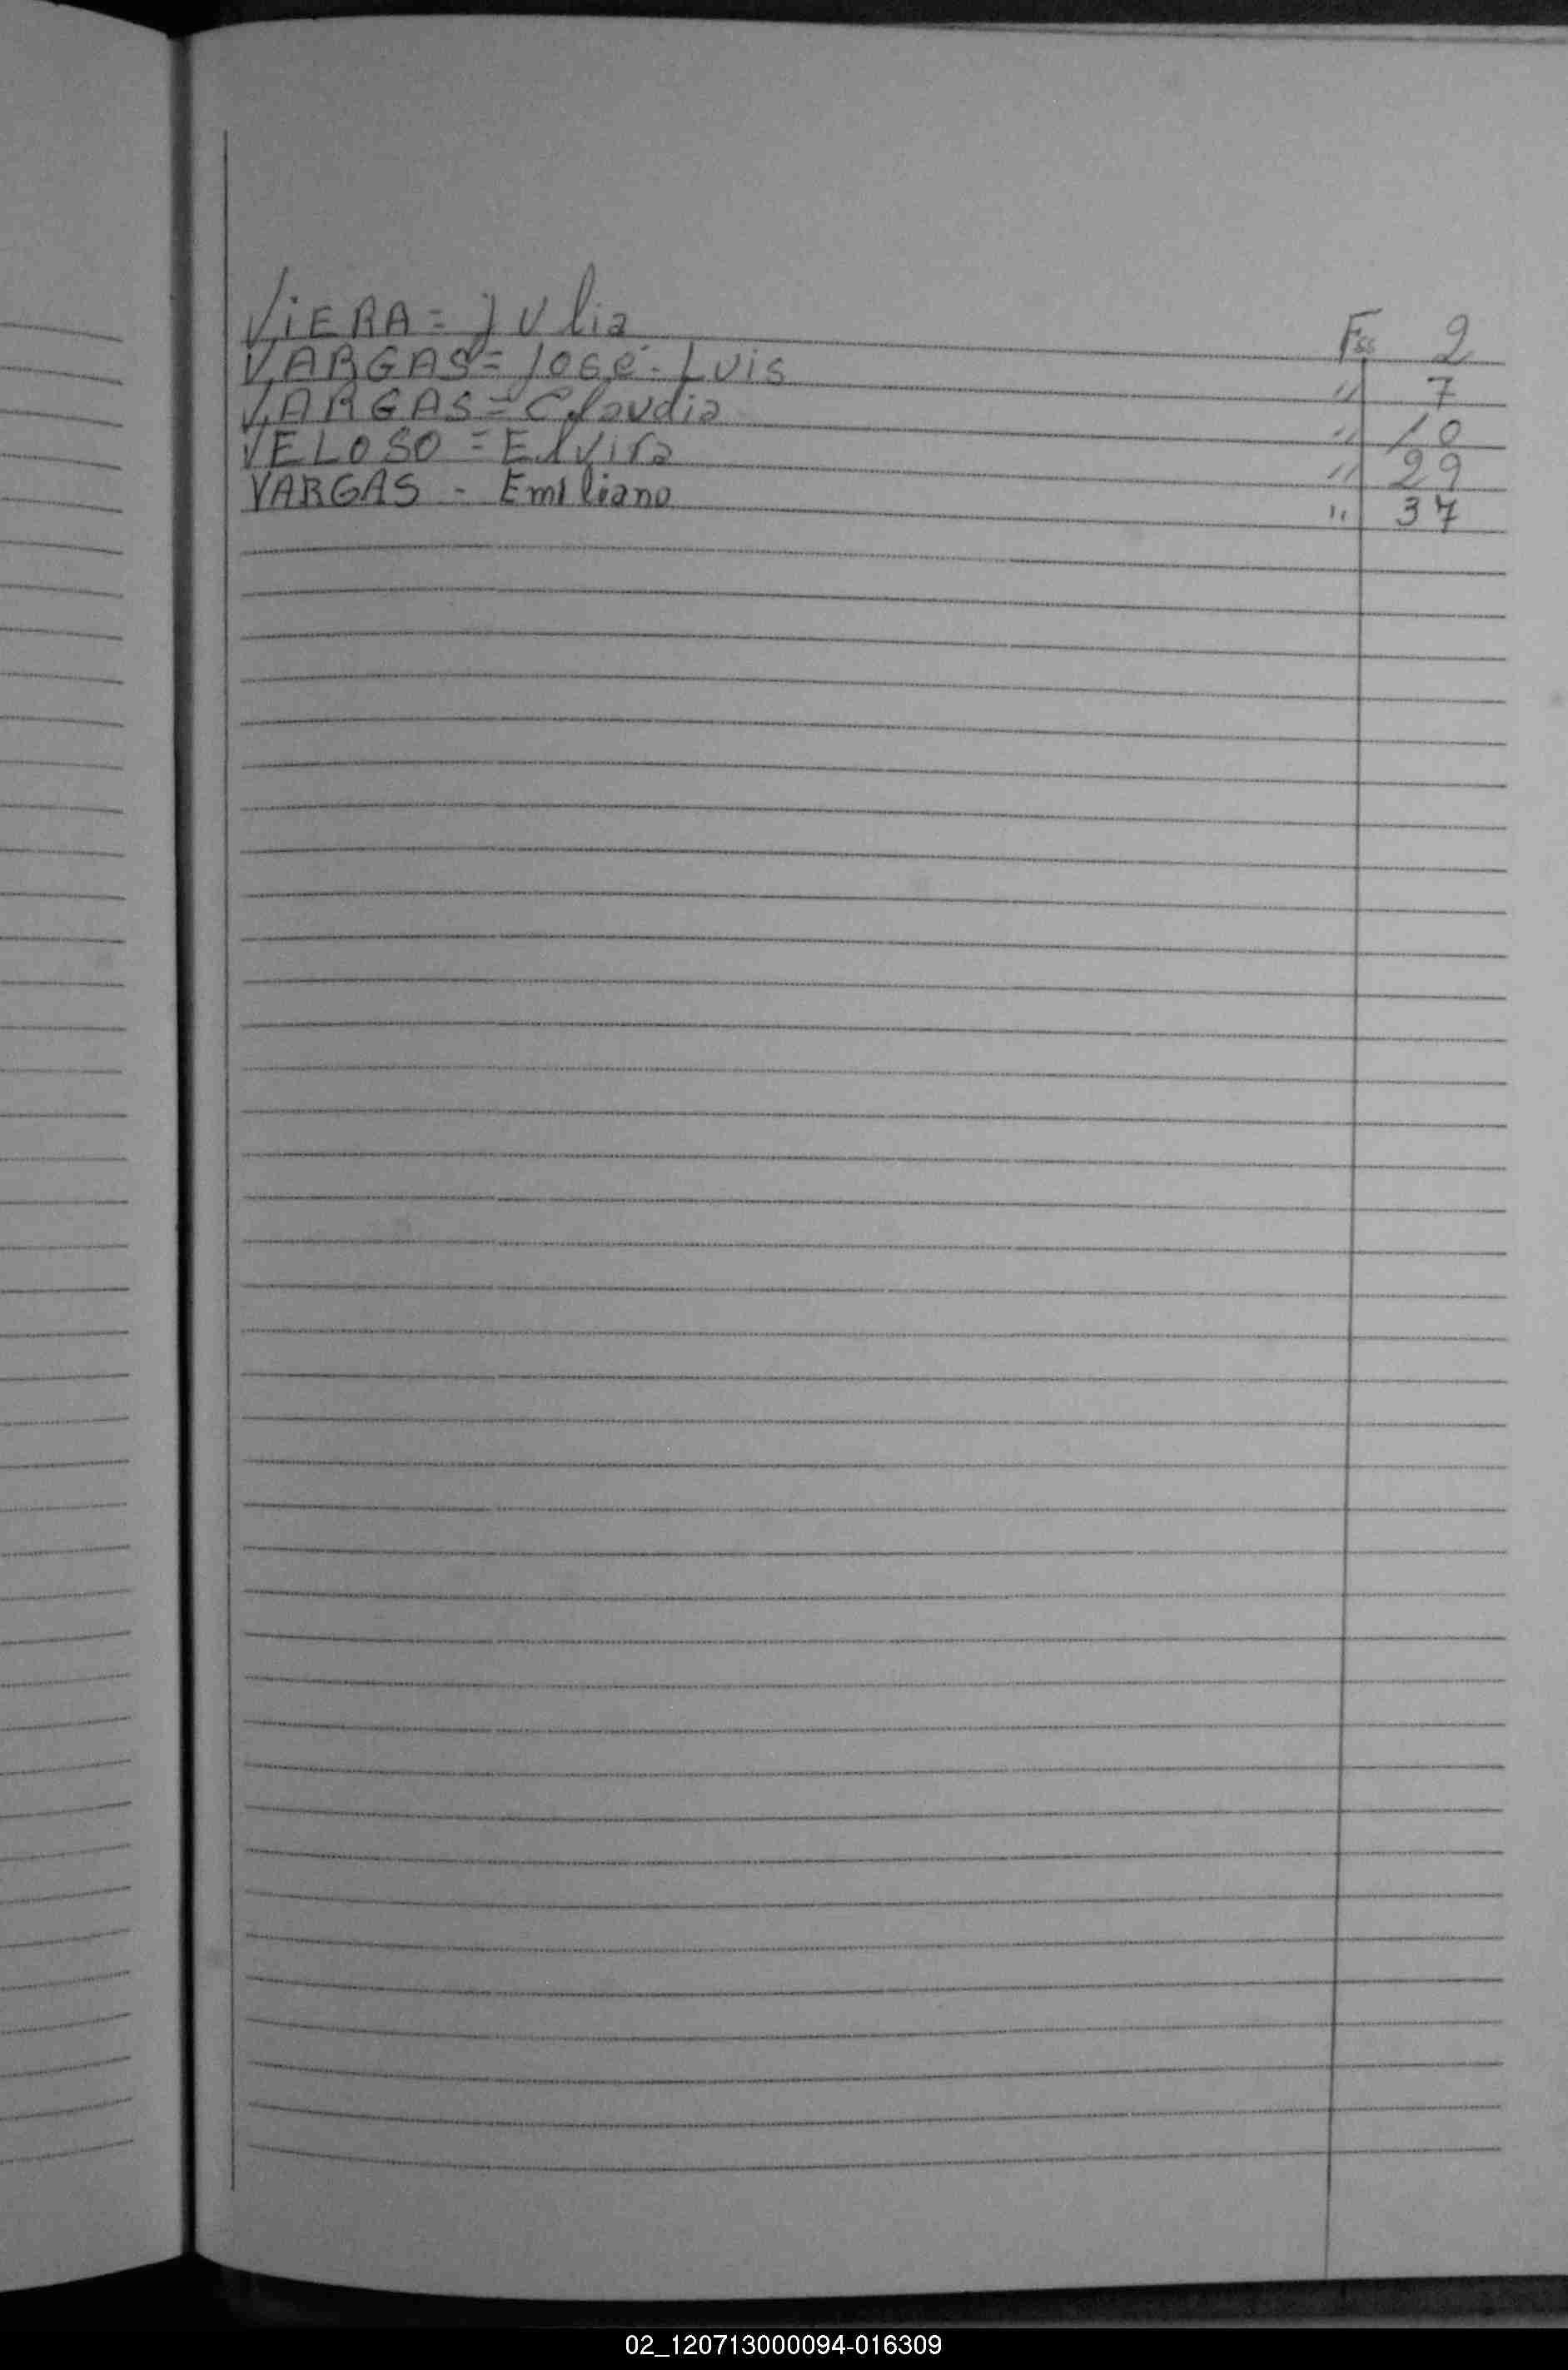 ViERA = JUlia Fss 2
VARGAS = José - Luis " 7
VARGAS = Claudia " 10
VELOSO = Elvira " 29
VARGAS - Emiliano " 37
02_120713000094-016309